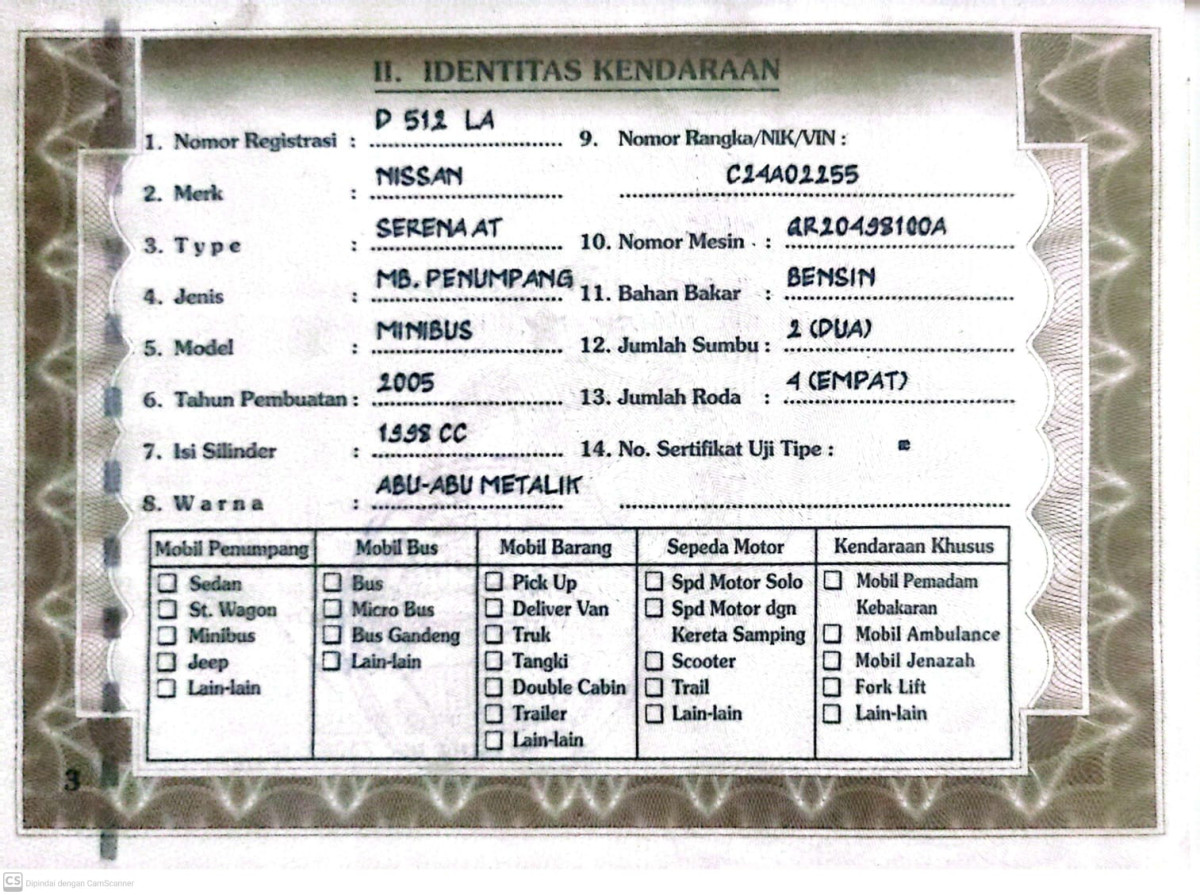 II. IDENTITAS KENDARAAN
1. Nomor Registrasi : D 512 LA
2. Merk : NISSAN
3. Type : SERENA AT
4. Jenis : MB. PENUMPANG
5. Model : MINIBUS
6. Tahun Pembuatan : 2005
7. Isi Silinder : 1998 CC
8. Warna : ABU-ABU METALIK
9. Nomor Rangka/NIK/VIN :
C24A02255
10. Nomor Mesin : QR20498100A
11. Bahan Bakar : BENSIN
12. Jumlah Sumbu : 2 (DUA)
13. Jumlah Roda : 4 (EMPAT)
14. No. Sertifikat Uji Tipe :
Mobil Penumpang
Sedan
St. Wagon
Minibus
Jeep
Lain-lain
Mobil Bus
Bus
Micro Bus
Bus Gandeng
Lain-lain
Mobil Barang
Pick Up
Deliver Van
Truk
Tangki
Double Cabin
Trailer
Lain-lain
Sepeda Motor
Spd Motor Solo
Spd Motor dgn
Kereta Samping
Scooter
Trail
Lain-lain
Kendaraan Khusus
Mobil Pemadam
Kebakaran
Mobil Ambulance
Mobil Jenazah
Fork Lift
Lain-lain
3
CS Dipindai dengan CamScanner